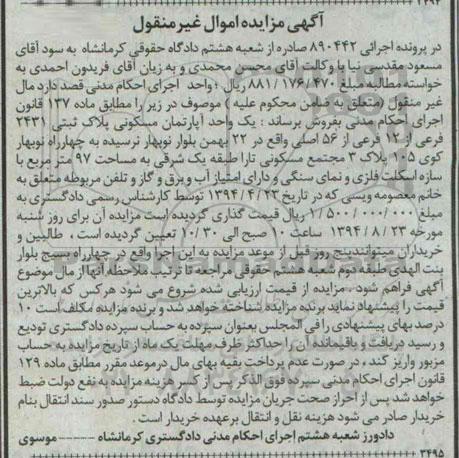 ۱۳۹۴
آگهی مزایده اموال غیر منقول
در پرونده اجرائی ۸۹۰۴۴۲ صادره از شعبه هشتم دادگاه حقوقی کرمانشاه به سود آقای
مسعود مقدسی نیا با وکالت آقای محسن محمدی و به زیان آقای فریدون احمدی به
خواسته مطالبه مبلغ ۸۸۱/۱۷۶/۴۷۰ ریال ؛ واحد اجرای احکام مدنی قصد دارد مال
غیر منقول (متعلق به ضامن محکوم علیه ) موصوف در زیر را مطابق ماده ۱۳۷ قانون
اجرای احکام مدنی بفروش برساند : یک واحد آپارتمان مسکونی پلاک ثبتی ۲۴۳۱
فرعی از ۱۲ فرعی از ۵۶ اصلی واقع در ۲۲ بهمن بلوار نوبهار نرسیده به چهارراه نوبهار
کوی ۱۰۵ پلاک ۳ مجتمع مسکونی تارا طبقه یک شرقی به مساحت ۹۷ متر مربع با
سازه اسکلت فلزی و نمای سنگی و دارای امتیاز آب و برق و گاز و تلفن مربوطه متعلق به
خانم معصومه ویسی که در تاریخ ۱۳۹۴/۴/۲۳ توسط کارشناس رسمی دادگستری به
مبلغ ۱/۵۰۰/۰۰۰/۰۰۰ ریال قیمت گذاری گردیده است مزایده آن برای روز شنبه
مورخه ۱۳۹۴/۸/۲۳ ساعت ۱۰ صبح الی ۱۰/۳۰ تعیین گردیده است ، طالبین و
خریداران میتوانند پنج روز قبل از موعد مزایده به این اجرا واقع در چهارراه بسیج بلوار
بنت الهدی طبقه دوم شعبه هشتم حقوقی مراجعه تا ترتیب ملاحظه آنها از مال موضوع
آگهی فراهم شود . مزایده از قیمت ارزیابی شده شروع می شود هر کس که بالاترین
قیمت را پیشنهاد نماید برنده مزایده شناخته خواهد شد و برنده مزایده مکلف است ۱۰
درصد بهای پیشنهادی را فی المجلس بعنوان سپرده به حساب سپرده دادگستری تودیع
و رسید دریافت و باقیمانده آن را حداکثر ظرف مهلت یک ماه از تاریخ مزایده به حساب
مزبور واریز کند ، در صورت عدم پرداخت بقیه بهای مال در موعد مقرر مطابق ماده ۱۲۹
قانون اجرای احکام مدنی سپرده فوق الذکر پس از کسر هزینه مزایده به نفع دولت ضبط
خواهد شد پس از احراز صحت جریان مزایده توسط دادگاه دستور صدور سند انتقال بنام
خریدار صادر می شود هزینه نقل و انتقال بر عهده خریدار است .
دادورز شعبه هشتم اجرای احکام مدنی دادگستری کرمانشاه ----- موسوی
۳۴۹۵